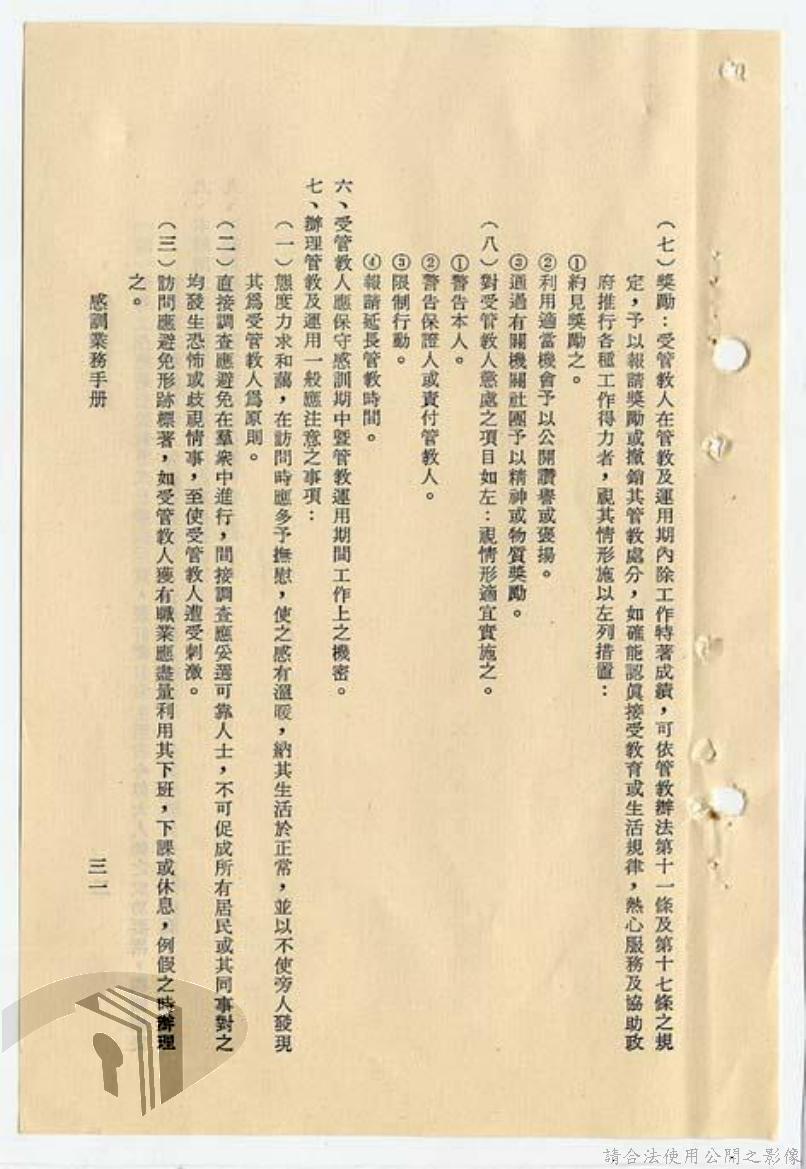 (七)獎勵：受管教人在管教及運用期內除工作特著成績，可依管教辦法第十一條及第十七條之規
定，予以報請獎勵或撤銷其管教處分，如確能認眞接受教育或生活規律，熱心服務及協助政
府推行各種工作得力者，視其情形施以左列措置：
①約見獎勵之。
②利用適當機會予以公開讚譽或褒揚。
③通過有關機關社團予以精神或物質獎勵。
(八)對受管教人懲處之項目如左：視情形適宜實施之。
①警告本人。
②警告保證人或責付管教人。
③限制行動。
④報請延長管教時間。
六、受管教人應保守感訓期中暨管教運用期間工作上之機密。
七、辦理管教及運用一般應注意之事項：
(一)態度力求和藹，在訪問時應多予撫慰，使之感有溫暖，納其生活於正常，並以不使旁人發現
其爲受管教人爲原則。
(二)直接調查應避免在羣衆中進行，間接調查應妥選可靠人士，不可促成所有居民或其同事對之
均發生恐怖或歧視情事，至使受管教人遭受刺激。
(三)訪問應避免形跡標著，如受管教人獲有職業應盡量利用其下班，下課或休息，例假之時辦理
之。
感訓業務手册
三一
請合法使用公開之影像